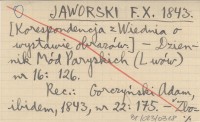 JAWORSKI F.X. 1843.
[Korespondencja z Wiednia o
wystawie obrazów] - Dzien-
nik Mód Paryskich (Lwów)
nr 16: 126.
Rec.: Gorczyński Adam,
ibidem, 1843, nr 22: 175. -